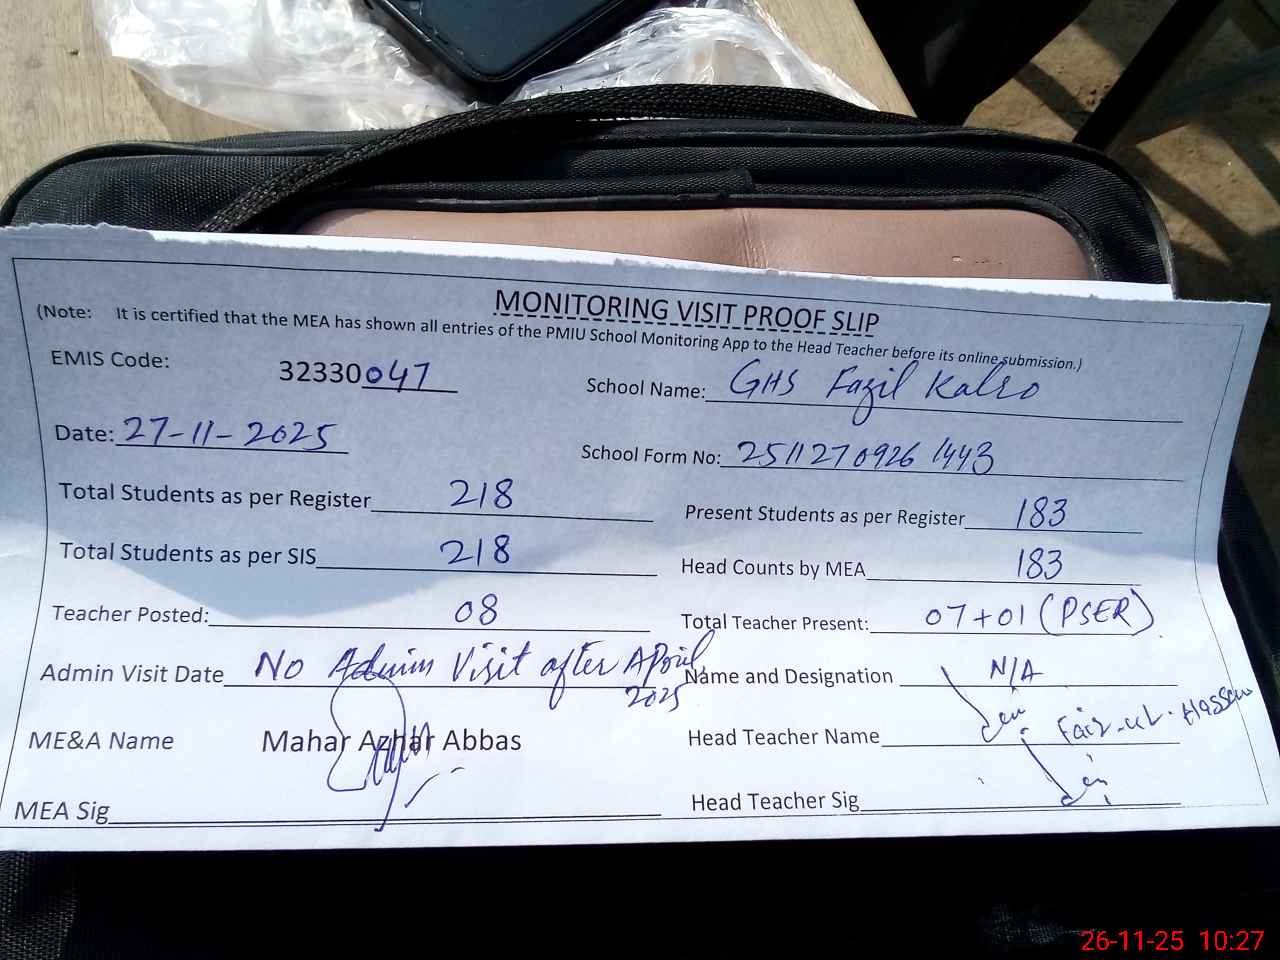 MONITORING VISIT PROOF SLIP
(Note: It is certified that the MEA has shown all entries of the PMIU School Monitoring App to the Head Teacher before its online submission.)
EMIS Code: 32330047 School Name: GHS Fazil Kalro
Date: 27-11-2025 School Form No: 2511270926 1443
Total Students as per Register 218 Present Students as per Register 183
Total Students as per SIS 218 Head Counts by MEA 183
Teacher Posted: 08 Total Teacher Present: 07+01 (PSER)
Admin Visit Date No Admin Visit after April 2025 Name and Designation N/A
ME&A Name Mahar Azhar Abbas Head Teacher Name Faiz-ul-Hassan
MEA Sig Head Teacher Sig
26-11-25 10:27